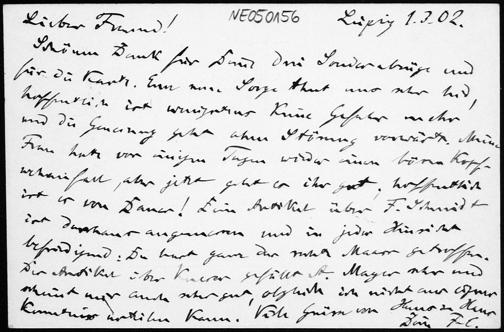 NE050156
Lieber Freund! Leipzig 1.3.02.
Schönen Dank für Deine drei Sonderabzüge und
für die Karte. Eure neue Sorge thut uns sehr leid,
hoffentlich ist wenigstens keine Gefahr mehr
und die Genesung geht ohne Störung vorwärts. Meine
Frau hatte vor einigen Tagen wieder einen bösen
aber jetzt geht es ihr gut, hoffentlich
ist es von Dauer! Dein Artikel über F. Schmidt
ist durchaus angemessen und in jeder Hinsicht
befriedigend: Du hast ganz das rechte Maass getroffen.
Der Artikel über gefällt A. Mayer sehr und
scheint mir auch sehr gut, obgleich ich nicht aus eigner
Kenntniss urtheilen kann. Viele Grüsse von Haus zu Haus
Dein F.C.